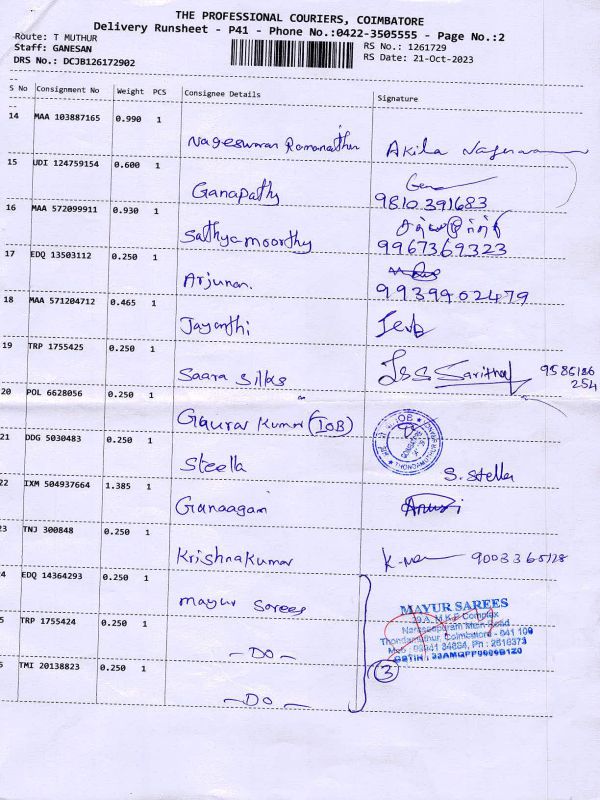 THE PROFESSIONAL COURIERS, COIMBATORE
Delivery Runsheet - P41 - Phone No.:0422-3505555 - Page No.:2
Route: T MUTHUR
Staff: GANESAN
DRS No.: DCJB126172902
RS No.: 1261729
RS Date: 21-Oct-2023
S No Consignment No Weight PCS Consignee Details Signature
14 MAA 103887165 0.990 1
Nageswaran Ramanathan Akila
15 UDI 124759154 0.600 1
Ganapathy
9810391683
16 MAA 572099911 0.930 1
Sathyamoorthy
9967369323
17 EDQ 13503112 0.250 1
Arjunan.
9939902479
18 MAA 571204712 0.465 1
Jayanthi
19 TRP 1755425 0.250 1
Saara Silks Saritha 9585186
254
20 POL 6628056 0.250 1
Gaurav Kumar (IOB)
IOB
THONDAMUTHUR
21 DDG 5030483 0.250 1
Steella S. Stella
22 IXM 504937664 1.385 1
Ganaagam
23 TNJ 300848 0.250 1
Krishnakumar 9003365128
24 EDQ 14364293 0.250 1
Mayur Sarees
MAYUR SAREES
39A, M.K.P. Complex
Narasepuram Main Road
Thondamuthur, Coimbatore - 641 109
5 TRP 1755424 0.250 1
- DO -
3
6 TMI 20138823 0.250 1
- DO -